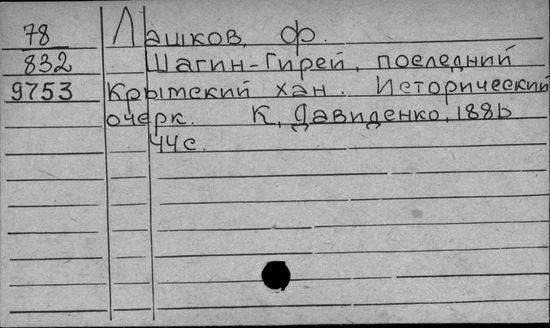 78 Лашков, Ф.
832 Шагин-Гирей, последний
9753 Крымский хан. Исторический
очерк. К, Давиденко, 1886
44с.